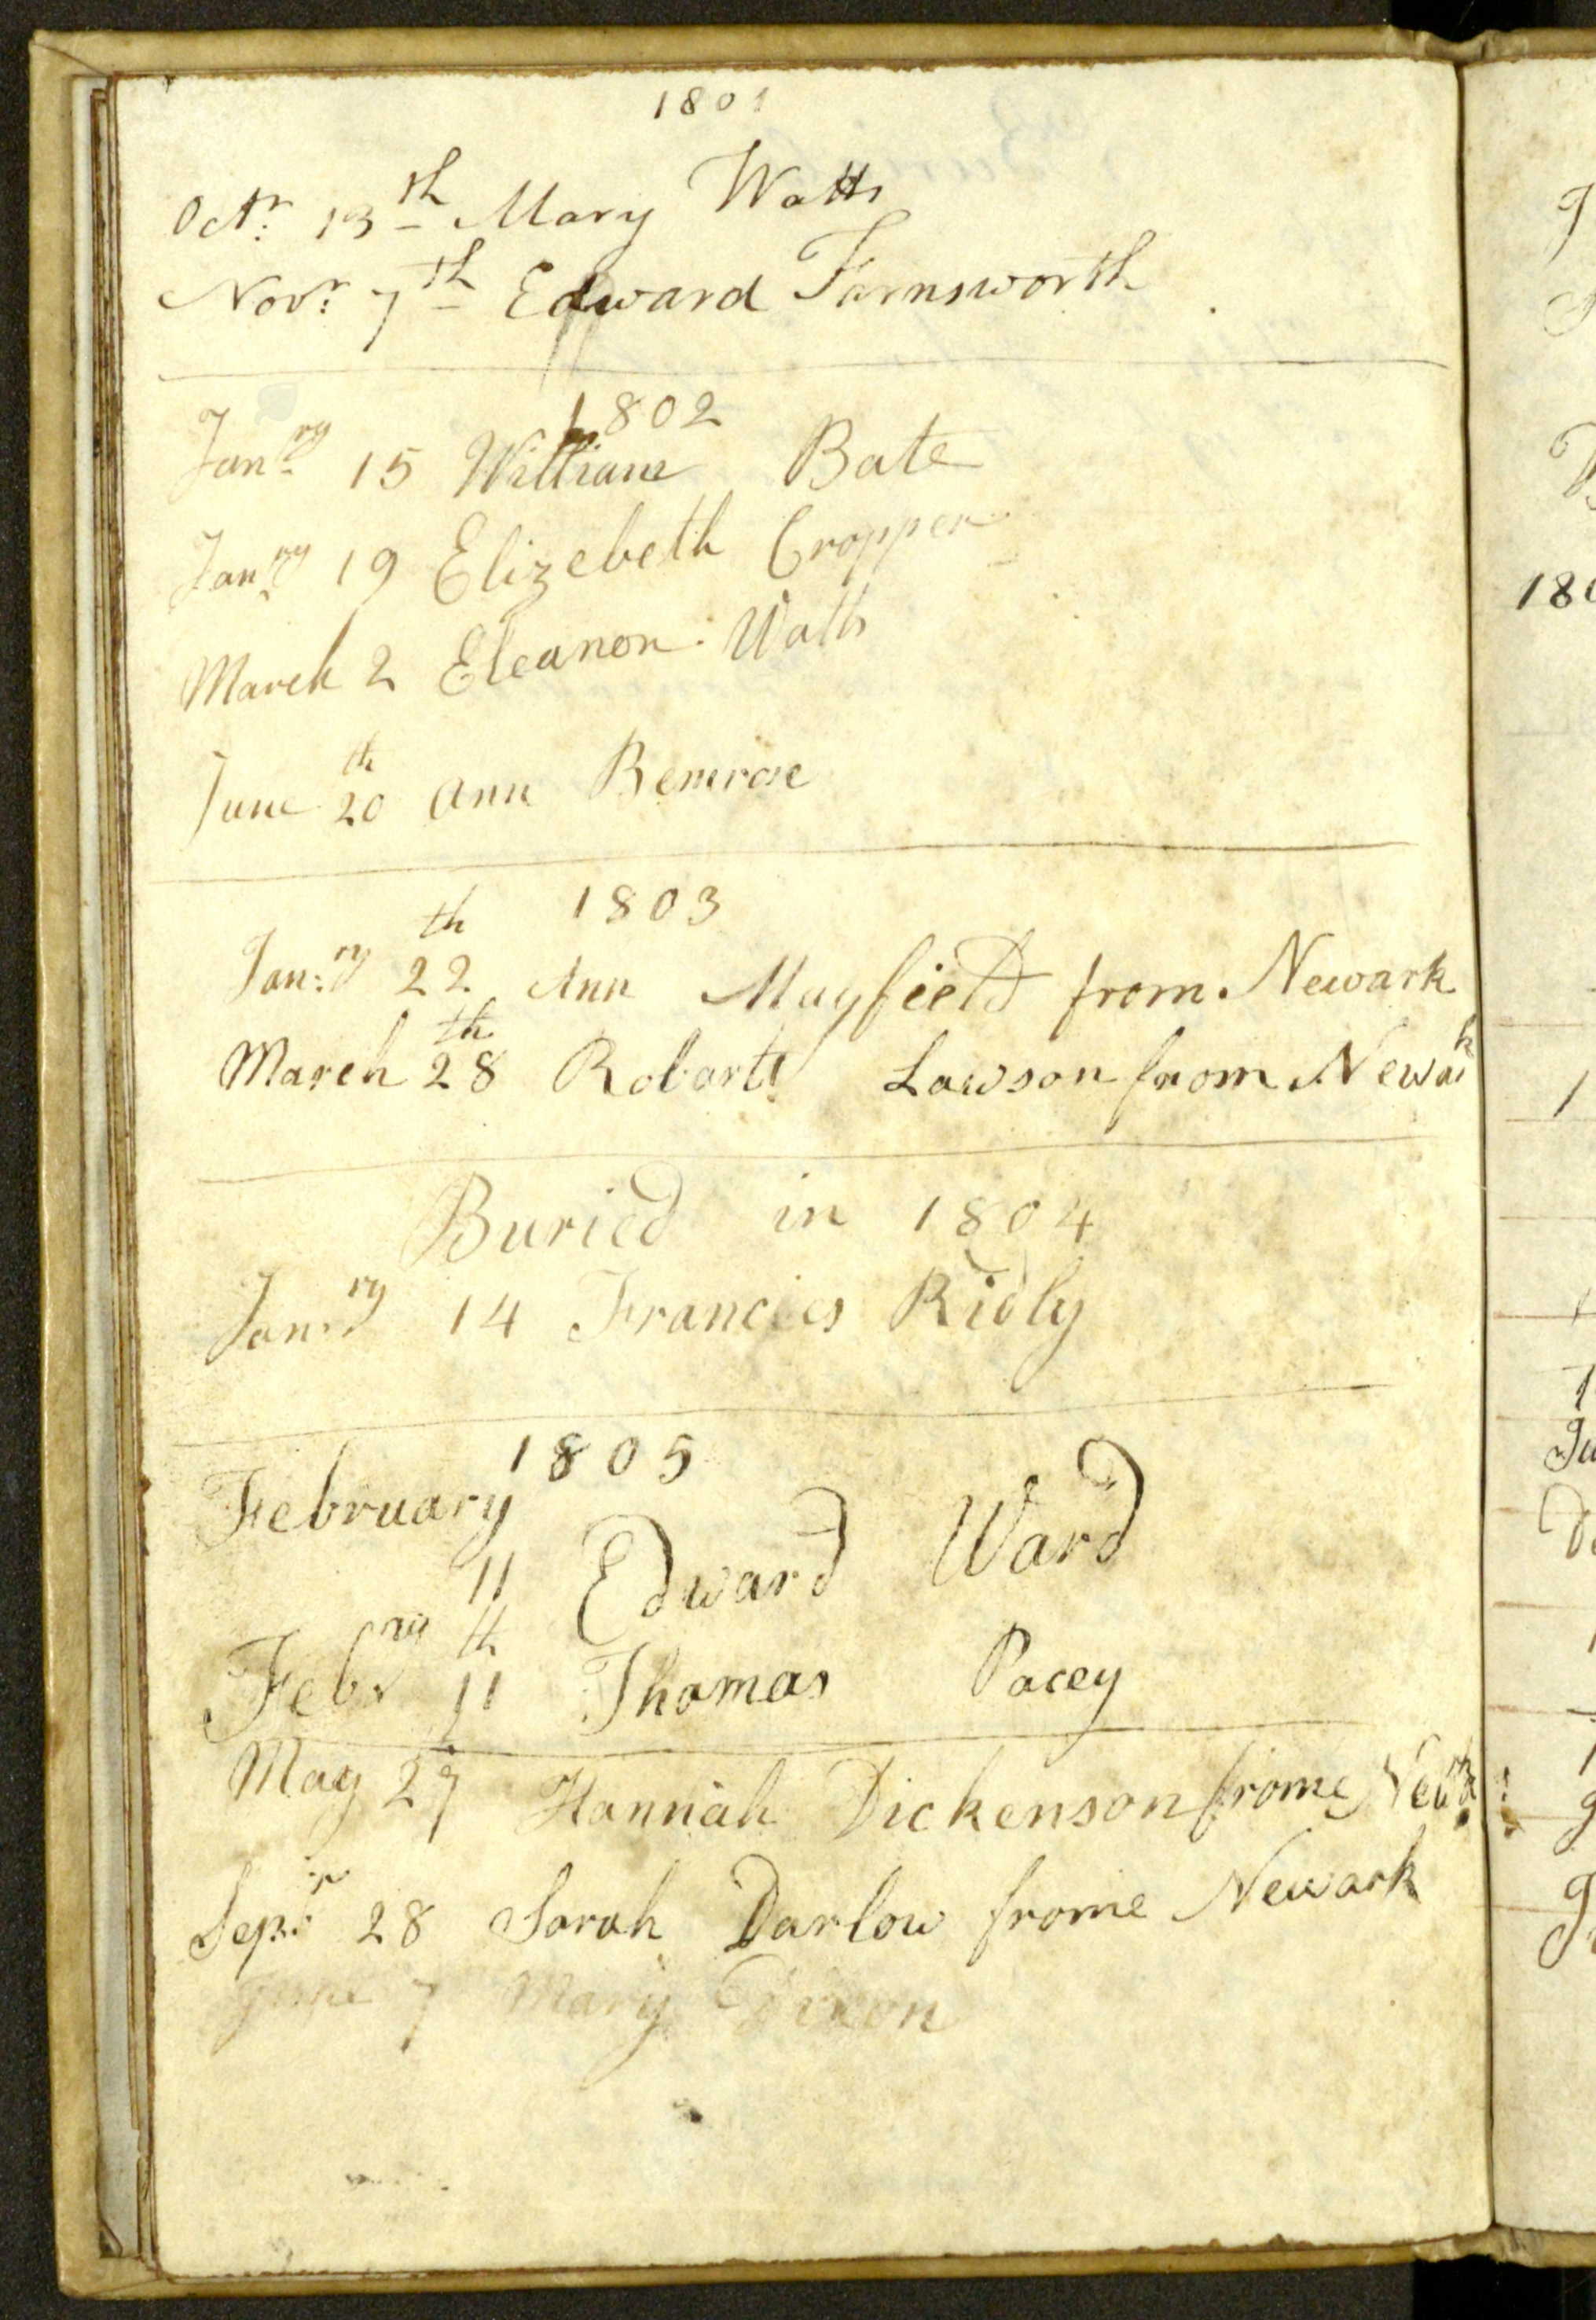 1801
Octr: 13th Mary Watts
Novr: 7th Edward Farnsworth
1802
Janry 15 William Bate
Janry 19 Elizebeth Cropper
March 2 Eleanor Watts
June 20th Ann Bemrose
1803
Jan:ry 22th Ann Mayfield from Newark
March 28th Robart Lawson from Newark
Buried in 1804
Jan:ry 14 Francies Ridly
1805
February
11 Edward Ward
Feb:ry 11th Thomas Pacey
May 27 Hannah Dickenson frome
Sep:r 28 Sarah Darlow frome Newark
June 7 Mary Dixon
180